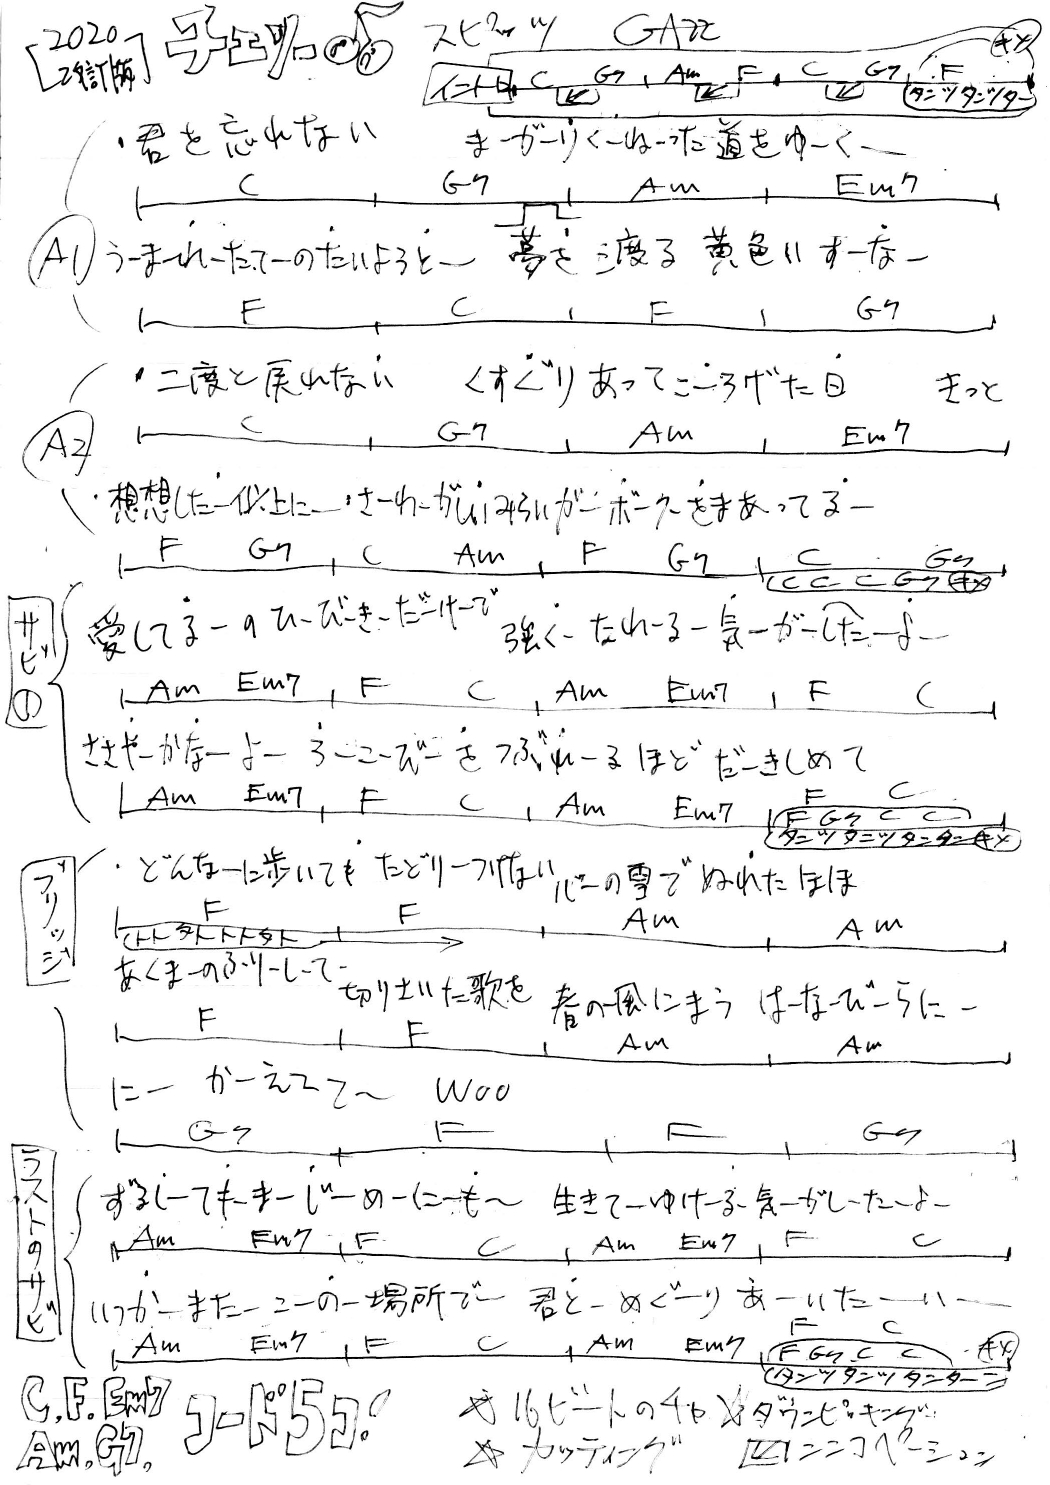 2020 改訂版 チェリー スピッツ GAZZ
キメ
イントロ C G7 Am F C G7 F
タンツタンツター
・君を忘れない まーがーりくーねーった道をゆーくー
C G7 Am Em7
A1 うーまーれーたてーのたいようとー 夢を渡る黄色いすーなー
F C F G7
・二度と戻れない くすぐりあってころげた日 きっと
A2 C G7 Am Em7
・想想したー以上にー・さーわーがしいみらいがーボークーをまあってるー
F G7 C Am F G7 C G7
C C C G7 キメ
サビの 愛してるーのひーびーきーだーけーで 強くーなれーるー気ーがーしたーよー
Am Em7 F C Am Em7 F C
ささやーかなーよー ろーこーびーをつぶれーるほどだーきしめて
Am Em7 F C Am Em7 F C
F G7 C C
タンツタンツタンターキメ
ブリッジ ・どんなーに歩いてもたどりーつけない 心ーの雪でぬれたほほ
F F Am Am
トトタトトトタト
あくまーのふりーしーてー 切りさいた歌を 春の風にまう はーなーびーらにー
F F Am Am
にー かーえてて～ woo
G7 F F G7
ラストのサビ ずるしーてもーまーじーめーにーも～ 生きてーゆけーるー気ーがしーたーよー
Am Em7 F C Am Em7 F C
いつかーまたーこーのー場所でー 君とーめぐーりあーいたーいー
Am Em7 F C Am Em7 F C
F G7 C C キメ
タンツタンツタンターン
C.F.Em7 Am.G7. コード5コ!
☆16ビートのチャ ☆ダウンピッキング
☆カッティング シンコペーション